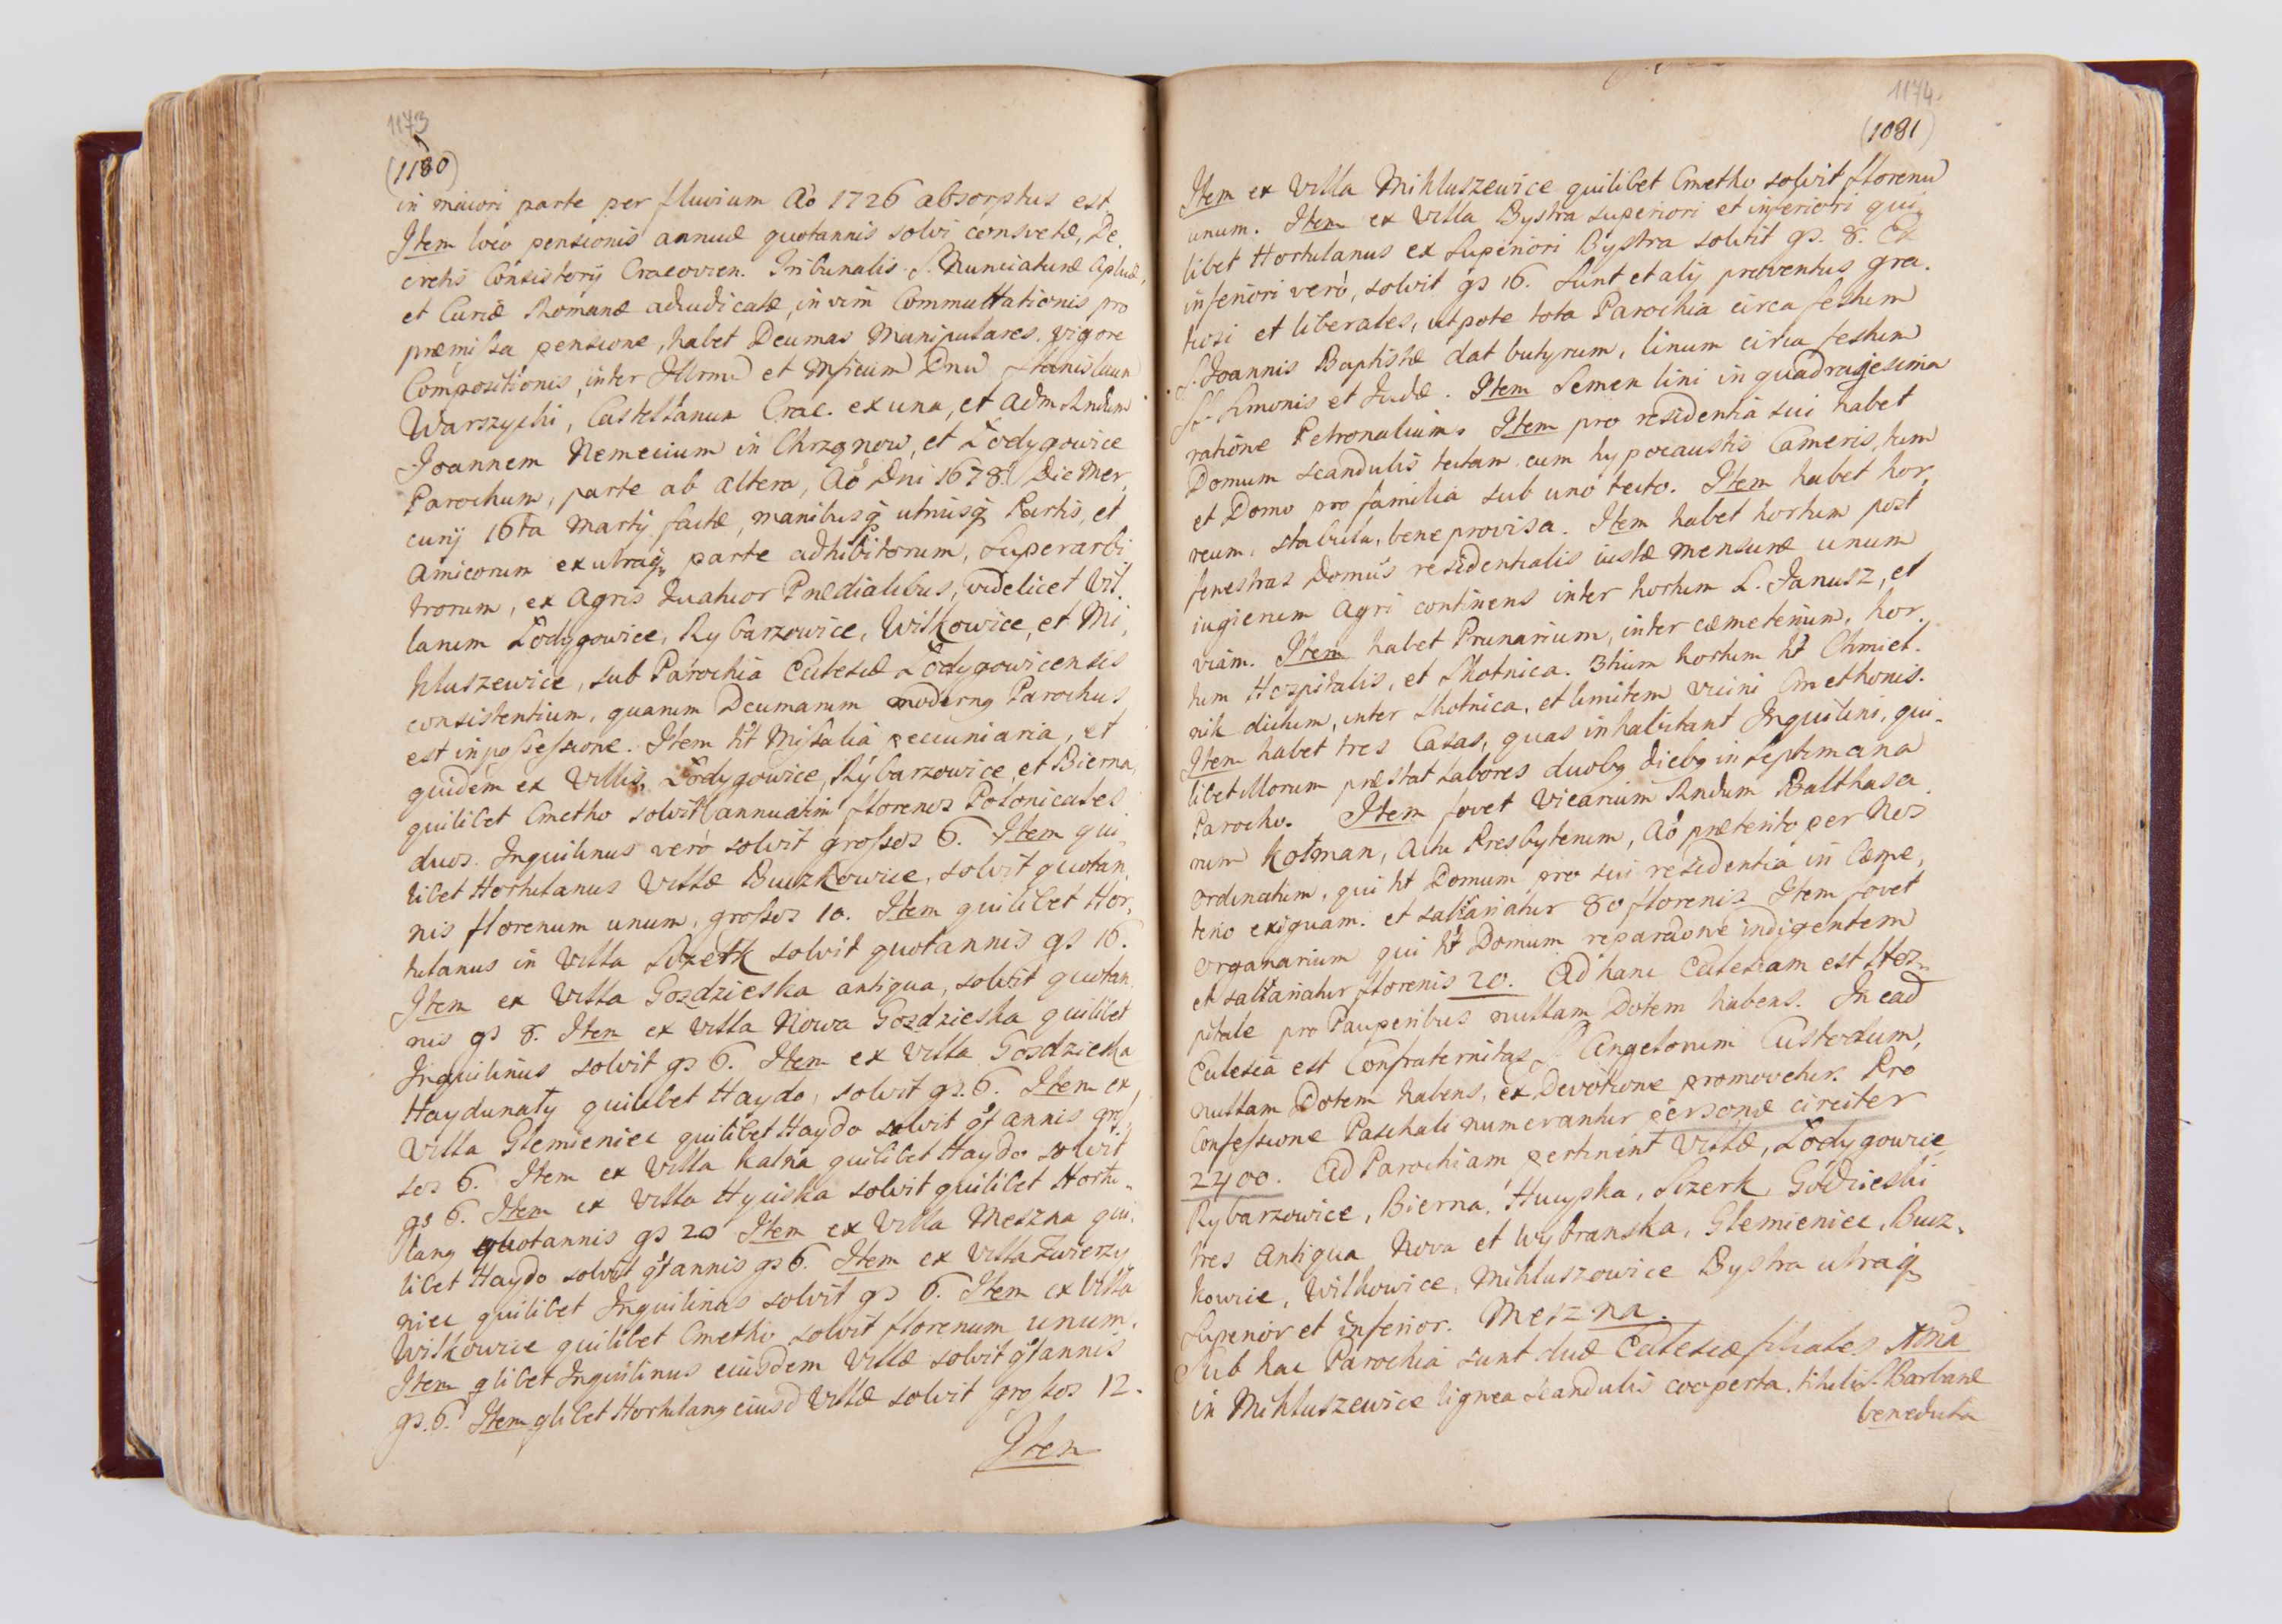 1173
(1180)
in maiori parte per fluvium Aõ 1726 absorptus est
Item loco pensionis annuæ quotannis solvi consvetæ, De,
cretis Consistorij Cracovien. Tribunalis S. Nunciaturæ Aplicæ,
et Curiæ Romanæ adiudicatæ, in vim Commuttationis pro
præmissa pensione, habet Decimas Manipulares. vigore
Compositionis, inter Illrmũ et Mficum Dnũ Stanislaum
Warszycki, Castellanum Crac. ex una, et Adm Rndum
Joannem Nemecium in Chrzgnow, et Łodygowice
Parochum, parte ab altera, Aõ Dni 1678. Die Mer,
curij 16ta Martij factæ, manibusq utriusq Partis, et
Amicorum ex utraq parte adhibitorum, Superarbi
trorum, ex Agris quatuor Prædialibus, videlicet Vil,
larum Łodygowice, Rybarzowice, Wilkowice, et Mi,
kluszewice, sub Parochia Ecclesiæ Łodygowicensis
consistentium, quarum Decimarum modernq Parochus
est in possessione. Item ht Missalia pecuniaria, et
quidem ex Villis, Łodygowice, Rybarzowice, et Bierna,
quilibet Cmetho solvit annuatim florenos Polonicales
duos. Inquilinus verò solvit grossos 6. Item qui,
libet Hortulanus Villæ Buczkowice, solvit quotan,
nis florenum unum, grossos 10. Item quilibet Hor,
tulanus in Villa Sczerk solvit quotannis gs 16.
Item ex Villa Gozdzieska antiqua, solvit quotan,
nis gs 8. Item ex Villa Nowa Gozdzieska quilibet
Inquilinus solvit gs 6. Item ex Villa Gozdzieska
Haydunaty quilibet Haydo, solvit gs. 6. Item ex
Villa Glemieniec quilibet Haydo solvit qtannis gros,
sos 6. Item ex Villa Kalna quilibet Haydo solvit
gs 6. Item ex Villa Hyciska solvit quilibet Hortu-
lanq quotannis gs 20 Item ex Villa Meszna qui,
libet Haydo solvit qtannis gs 6. Item ex Villa Zwierzy
niec quilibet Inquilinus solvit gs 6. Item ex Villa
Wilkowice quilibet Cmetho solvit florenum unum.
Item qlibet Inquilinus eiusdem Villæ solvit qtannis
gs. 6. Item qlibet Hortulanq eiusd Villæ solvit grossos 12.
Item
1174.
(1081)
Item ex Villa Mikluszewice quilibet Cmetho solvit florenũ
unum. Item ex Villa Bystra Superiori et inferiori qui,
libet Hortulanus ex Superiori Bystra solvit gs. 8. Ex
inferiori verò, solvit gs 16. Sunt et alij proventus gra.
tiosi et liberales, utpote tota Parochia circa festum
S. Joannis Baptistæ dat butyrum, linum circa festum
S. Simonis et Judæ. Item Semen lini in quadragesima
ratione Petronalium. Item pro residentia sui habet
Domum scandulis tectam cum hypocaustis Cameris, tum
et Domo pro familia sub uno tecto. Item habet hor,
reum, stabula, bene provisa. Item habet hortum post
fenestras Domus residentialis iustæ mensuræ unum
iugierum Agri continens inter hortum S. Janusz, et
viam. Item habet Prunarium, inter cæmeterium, hor.
tum Hospitalis, et Skotnica. 3tium hortum ht Chmiel.
nik dictum, inter Skotnica, et limitem vicini Cmethonis.
Item habet tres Casas, quas inhabitant Inquilini, qui-
libet illorum præstat Labores duobq diebq in septimana
Parocho. Item fovet Vicarium Rndum Balthasa,
rum Kotman, Actu Presbyterum, Aõ præterito per Nos
ordinatum, qui ht Domum pro sui residentia in Cæme,
terio exiguam. et sallariatur 80 florenis Item fovet
organarium qui ht Domum reparaõne indigentem
et sallariatur florenis 20. Ad hanc Ecclesiam est Hos-
pitale pro Pauperibus nullam Dotem habens. In eãd
Ecclesia est Confraternitas S Angelorum Custodum,
nullam Dotem habens, ex Devotione promovetur. Pro
Confessione Paschali numerantur personæ circiter
2400. Ad Parochiam pertinent Villæ, Łodygowice
Rybarzowice, Bierna, Hucyska, Sczerk, Gozdzieski
tres Antiqua Nova et Wybranska, Glemieniec, Bucz-
kowice, Wilkowice, Mikluszowice Bystra utraq
Superior et inferior. Meszna.
Sub hac Parochia sunt duæ Ecclesiæ filiales 1ma
in Mikluszewice lignea scandulis cooperta. tituli S. Barbaræ
benedicta